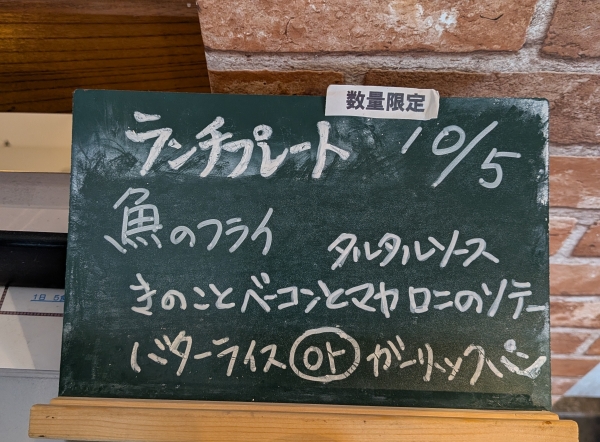 数量限定
ランチプレート 10/5
魚のフライ タルタルソース
きのことベーコンとマカロニのソテー
バターライス or ガーリックパン